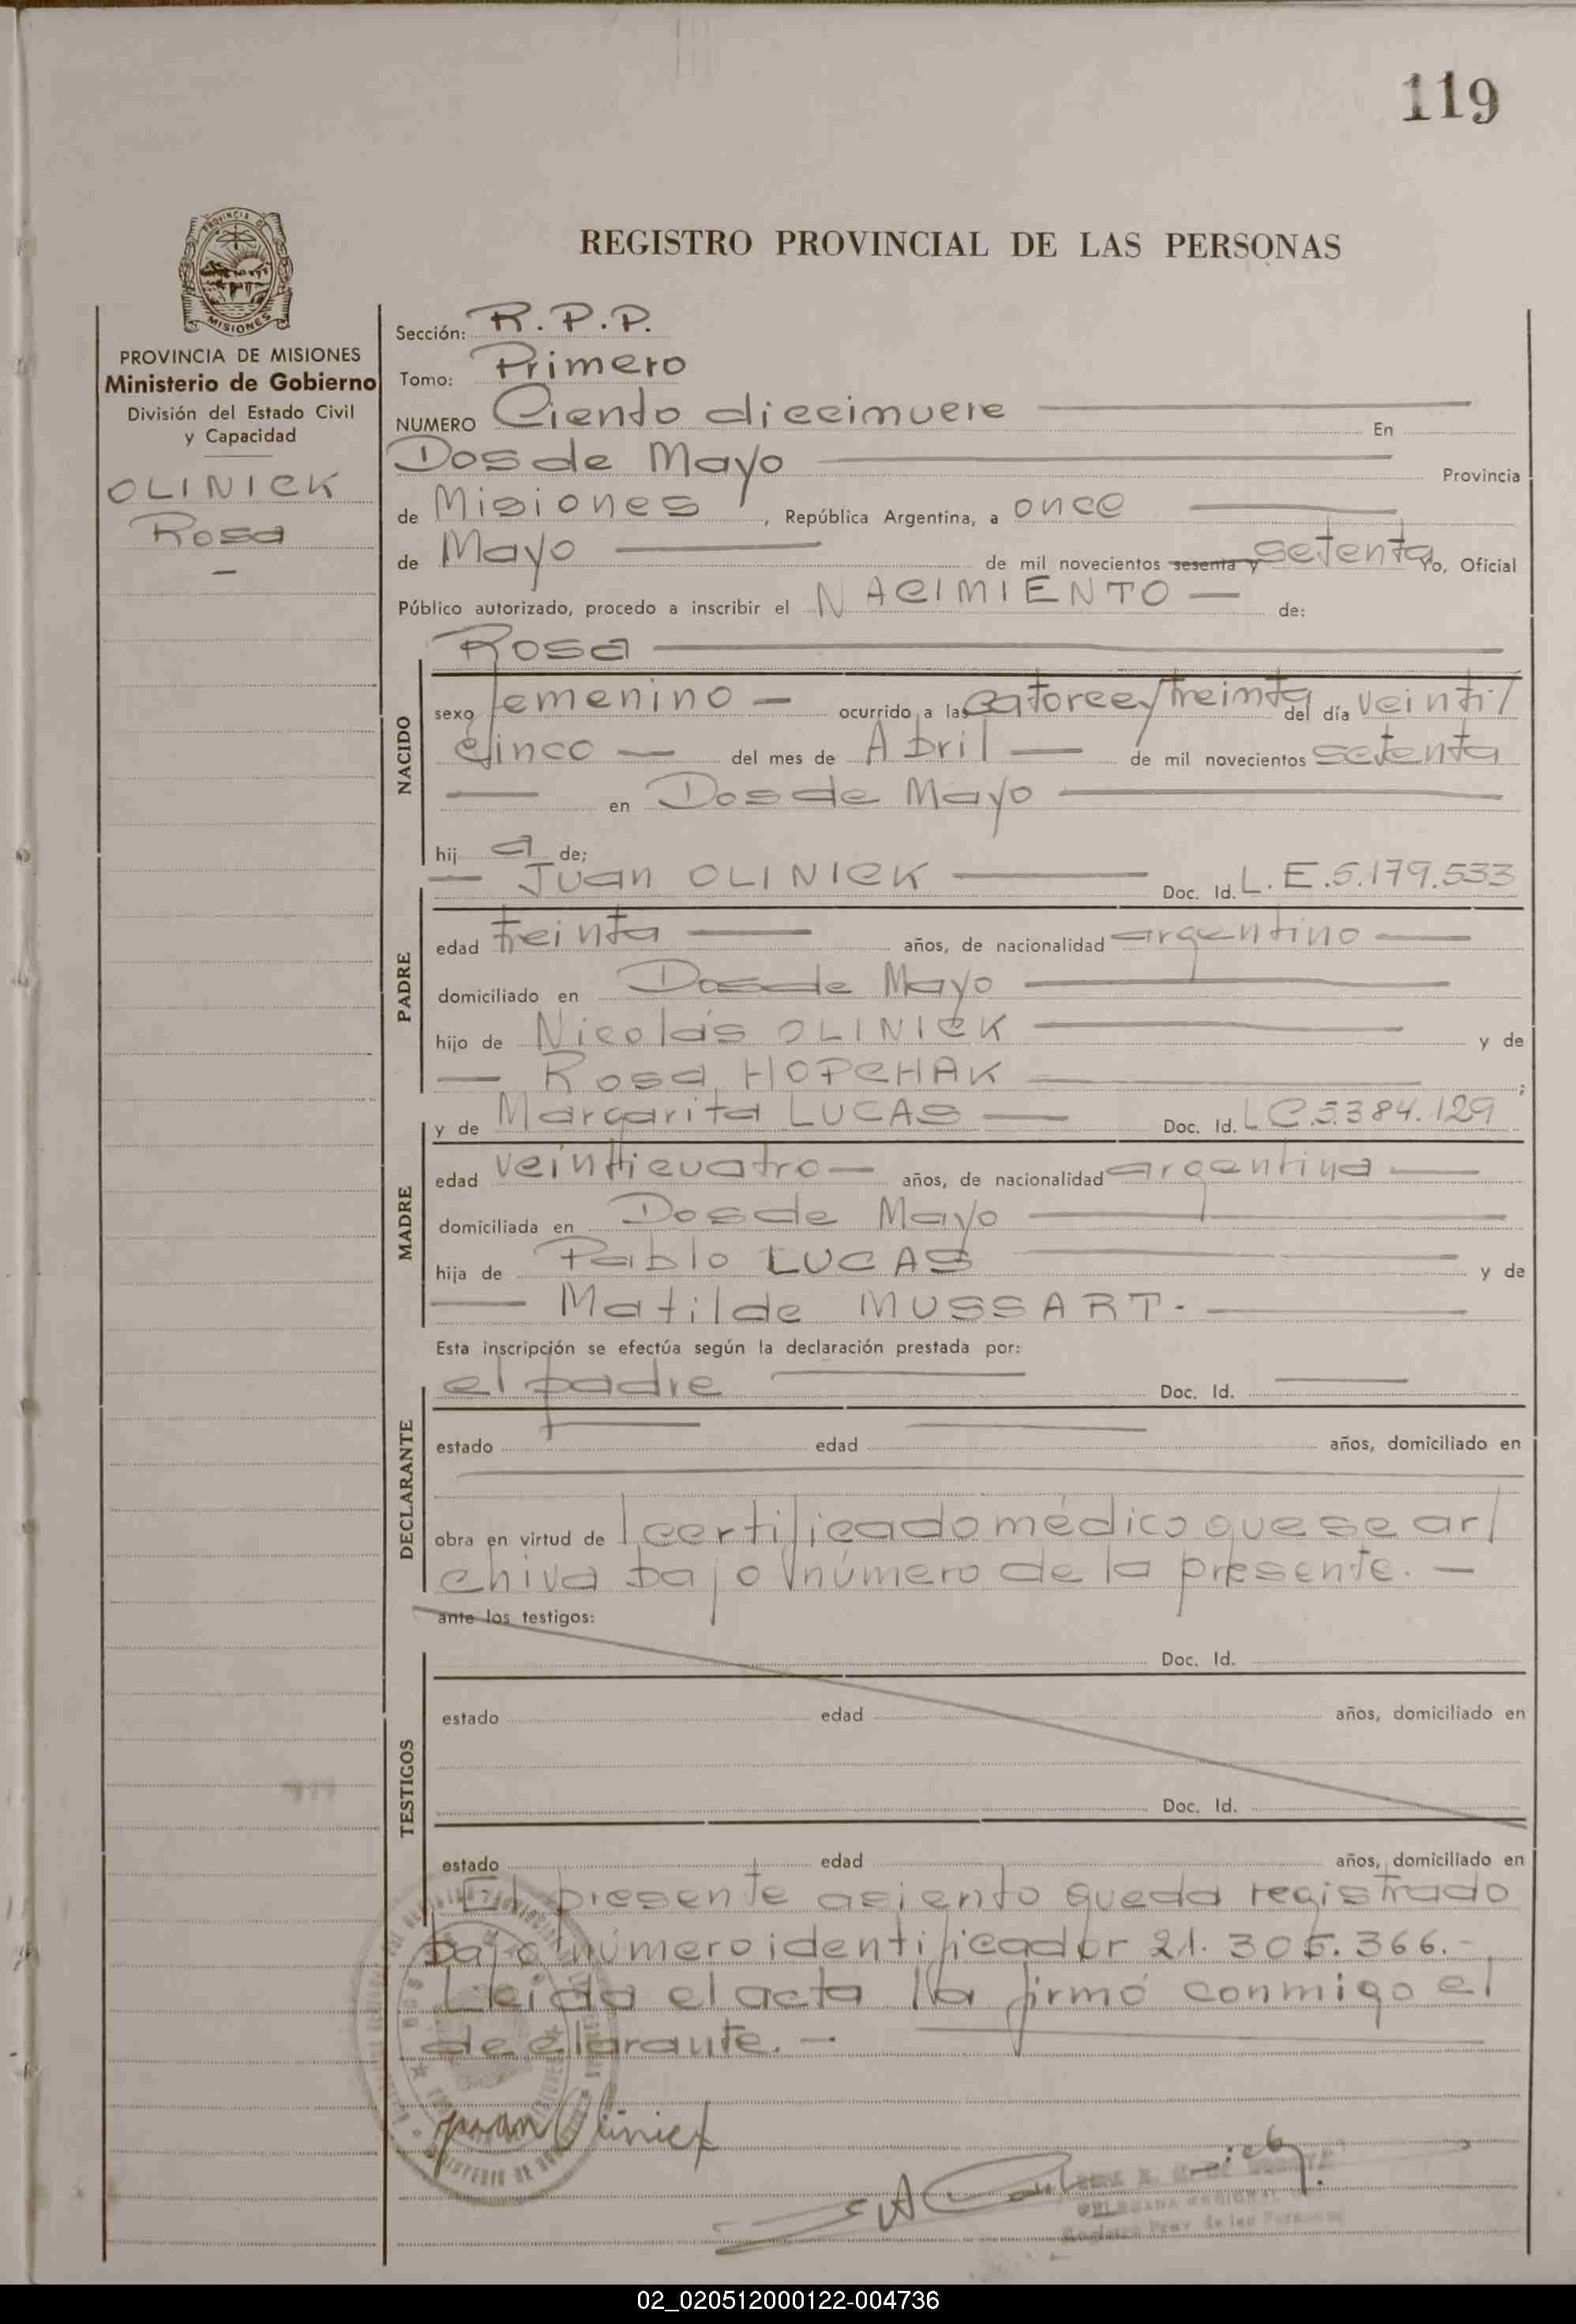 119
PROVINCIA DE
MISIONES
REGISTRO PROVINCIAL DE LAS PERSONAS
PROVINCIA DE MISIONES
Ministerio de Gobierno
División del Estado Civil
y Capacidad
OLINICK
Rosa
Sección: R.P.P.
Tomo: Primero
NUMERO Ciento diecinueve En
Dos de Mayo Provincia
de Misiones, República Argentina, a once
de Mayo de mil novecientos sesenta y setenta Yo, Oficial
Público autorizado, procedo a inscribir el NACIMIENTO — de:
Rosa
NACIDO
sexo femenino — ocurrido a las catorce y treinta del día veinti/
cinco — del mes de Abril — de mil novecientos setenta
— en Dos de Mayo
hij a de;
— Juan OLINICK Doc. Id. L.E.5.179.533
PADRE
edad treinta años, de nacionalidad argentino —
domiciliado en Dos de Mayo
hijo de Nicolás OLINICK y de
— Rosa HOPCHAK ;
y de Margarita LUCAS — Doc. Id. L.C.5.384.129
MADRE
edad veinticuatro — años, de nacionalidad argentina —
domiciliada en Dos de Mayo
hija de Pablo LUCAS y de
— Matilde MUSSART.-
Esta inscripción se efectúa según la declaración prestada por:
el padre Doc. Id. —
DECLARANTE
estado — edad — años, domiciliado en
obra en virtud de l certificado médico que se ar/
chiva bajo número de la presente. —
ante los testigos:
Doc. Id.
TESTIGOS
estado edad años, domiciliado en
Doc. Id.
estado edad años, domiciliado en
El presente asiento queda registrado
bajo número identificador 21.305.366.-
Leida el acta la firmó conmigo el
declarante. —
Juan Olinick
DELEGADA
02_020512000122-004736